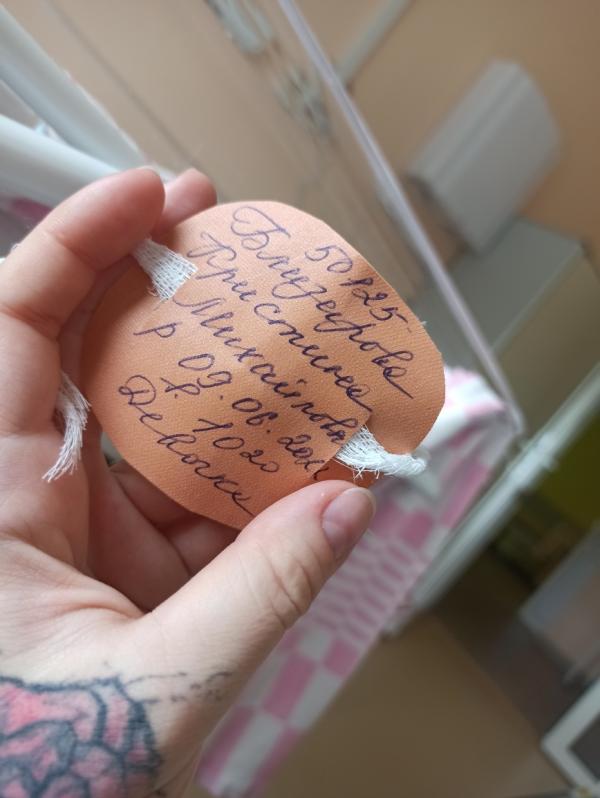 50 825
Близнрова
Кристина
Михайловна
р 09. 06. 20
в. 10 20
Девочка